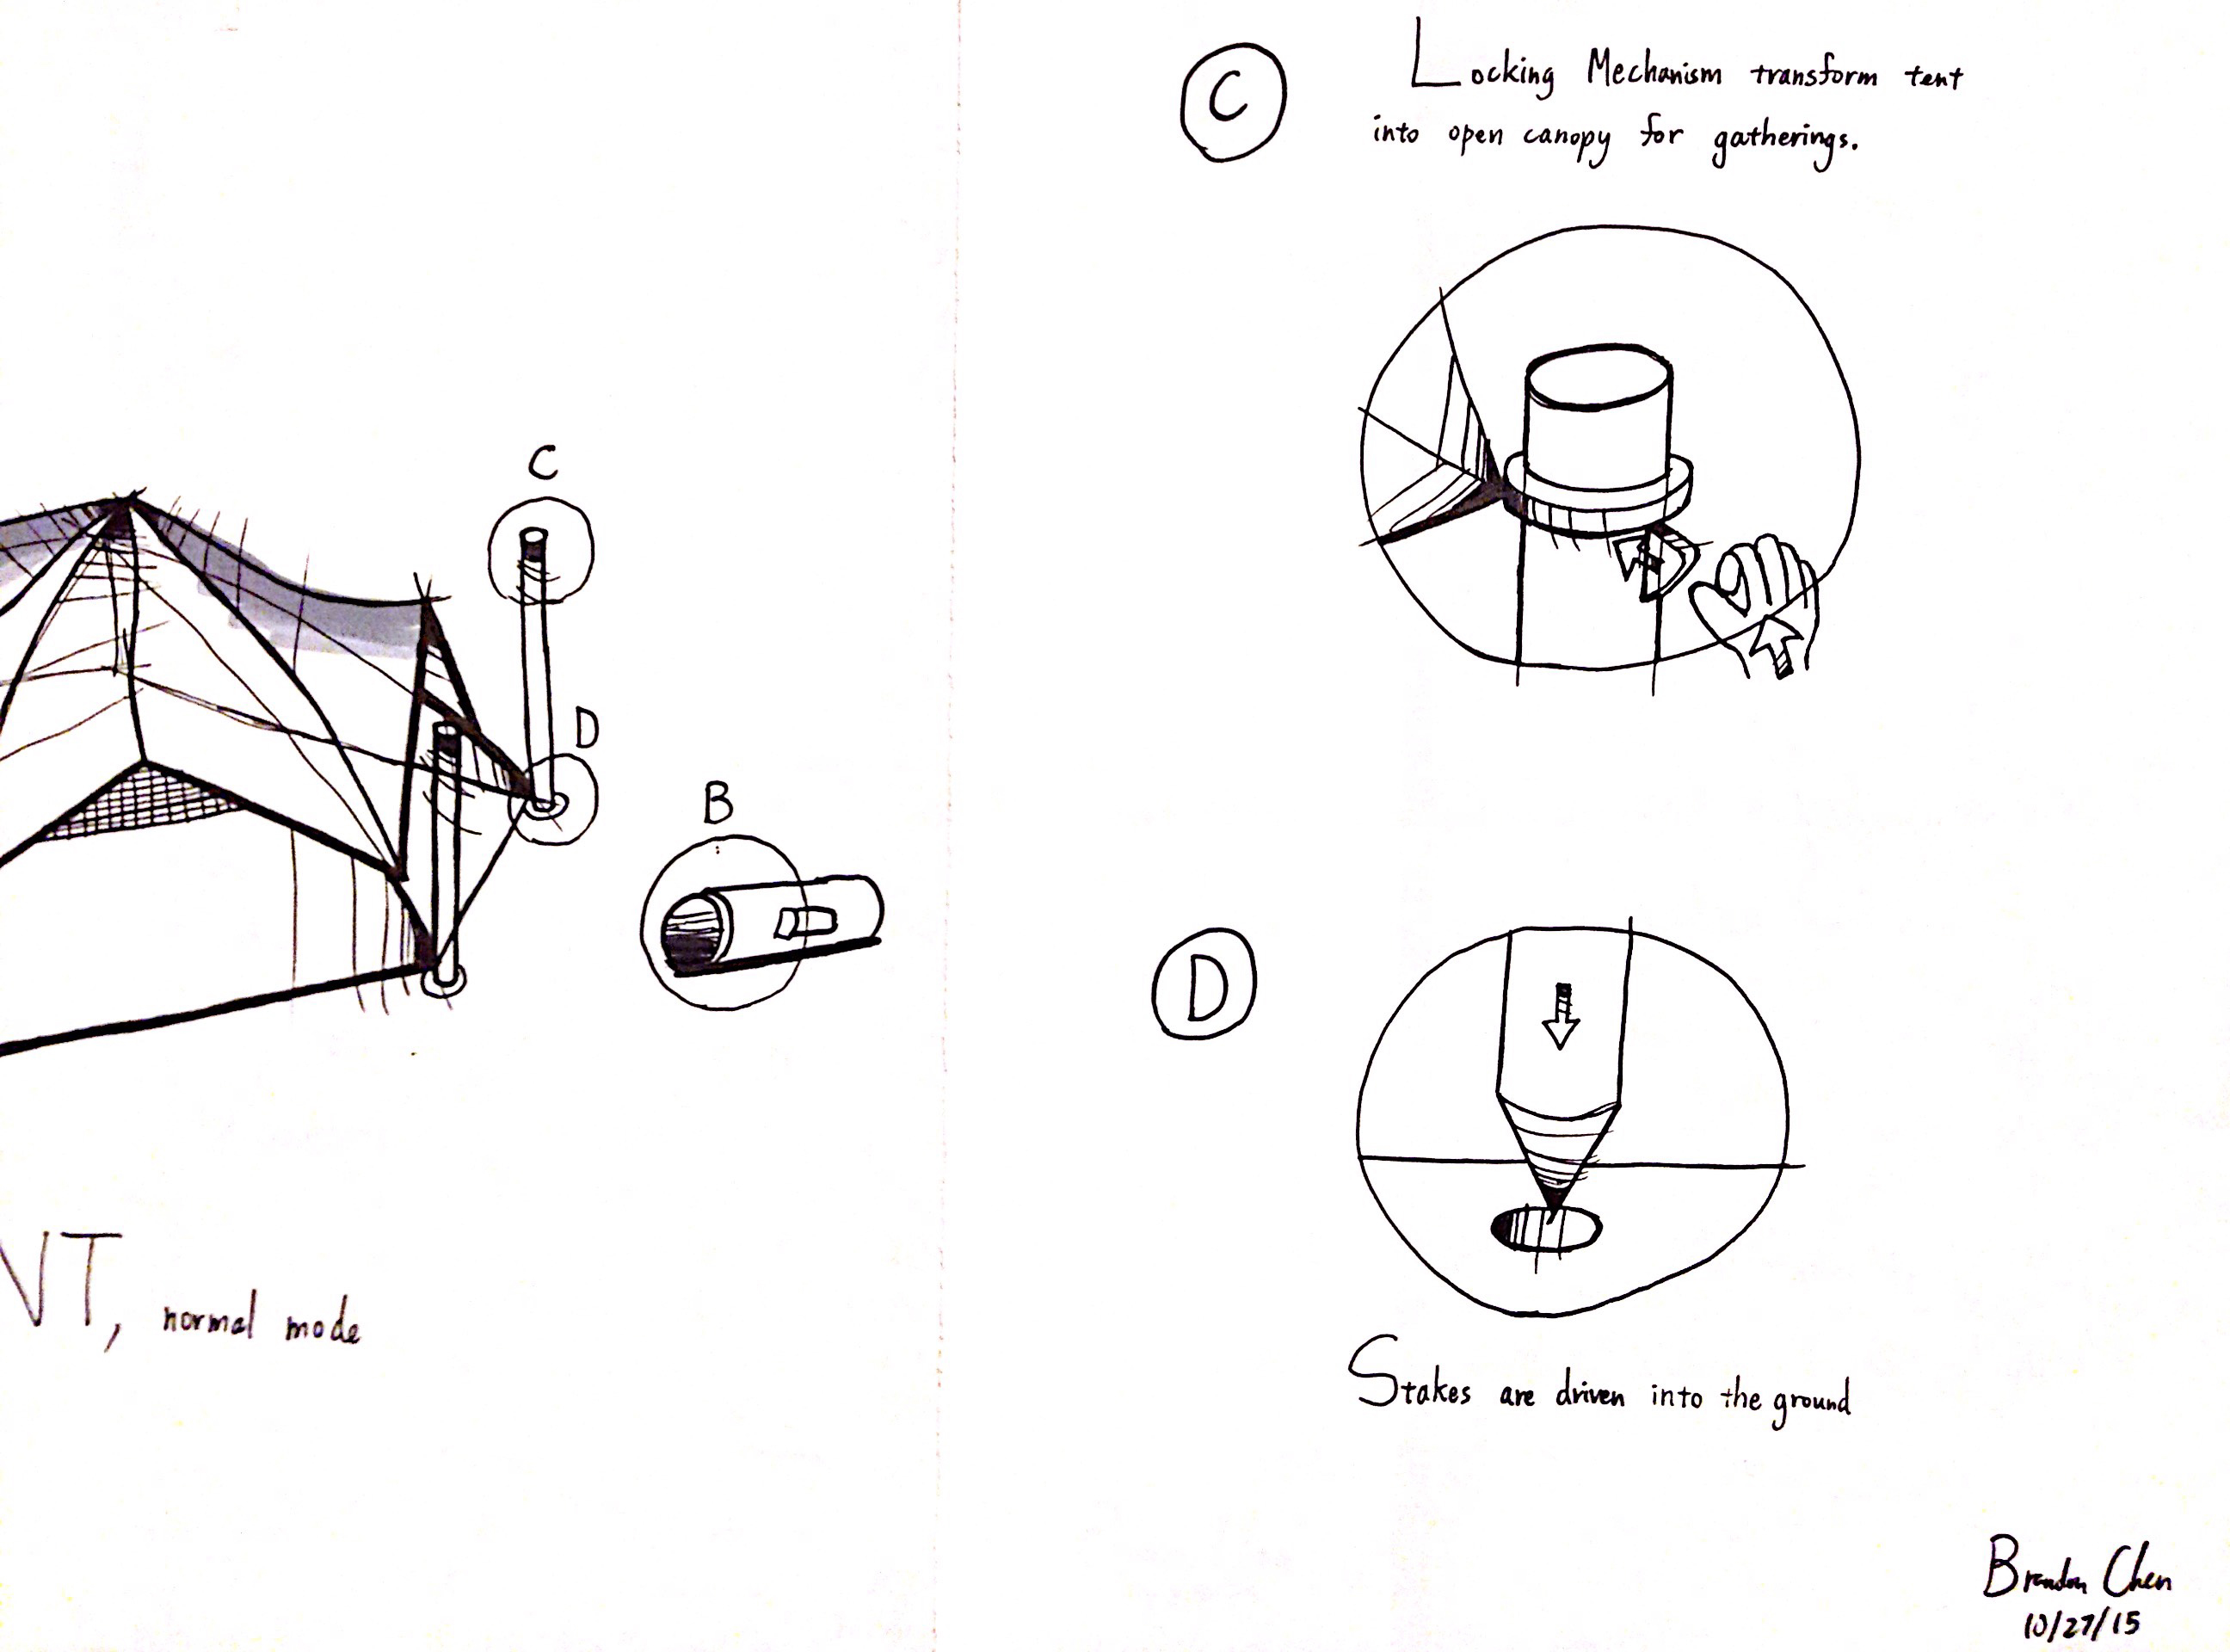 C
D
B
NT, normal mode
C
Locking Mechanism transform tent
into open canopy for gatherings.
D
Stakes are driven into the ground
Brandon Chen
10/27/15